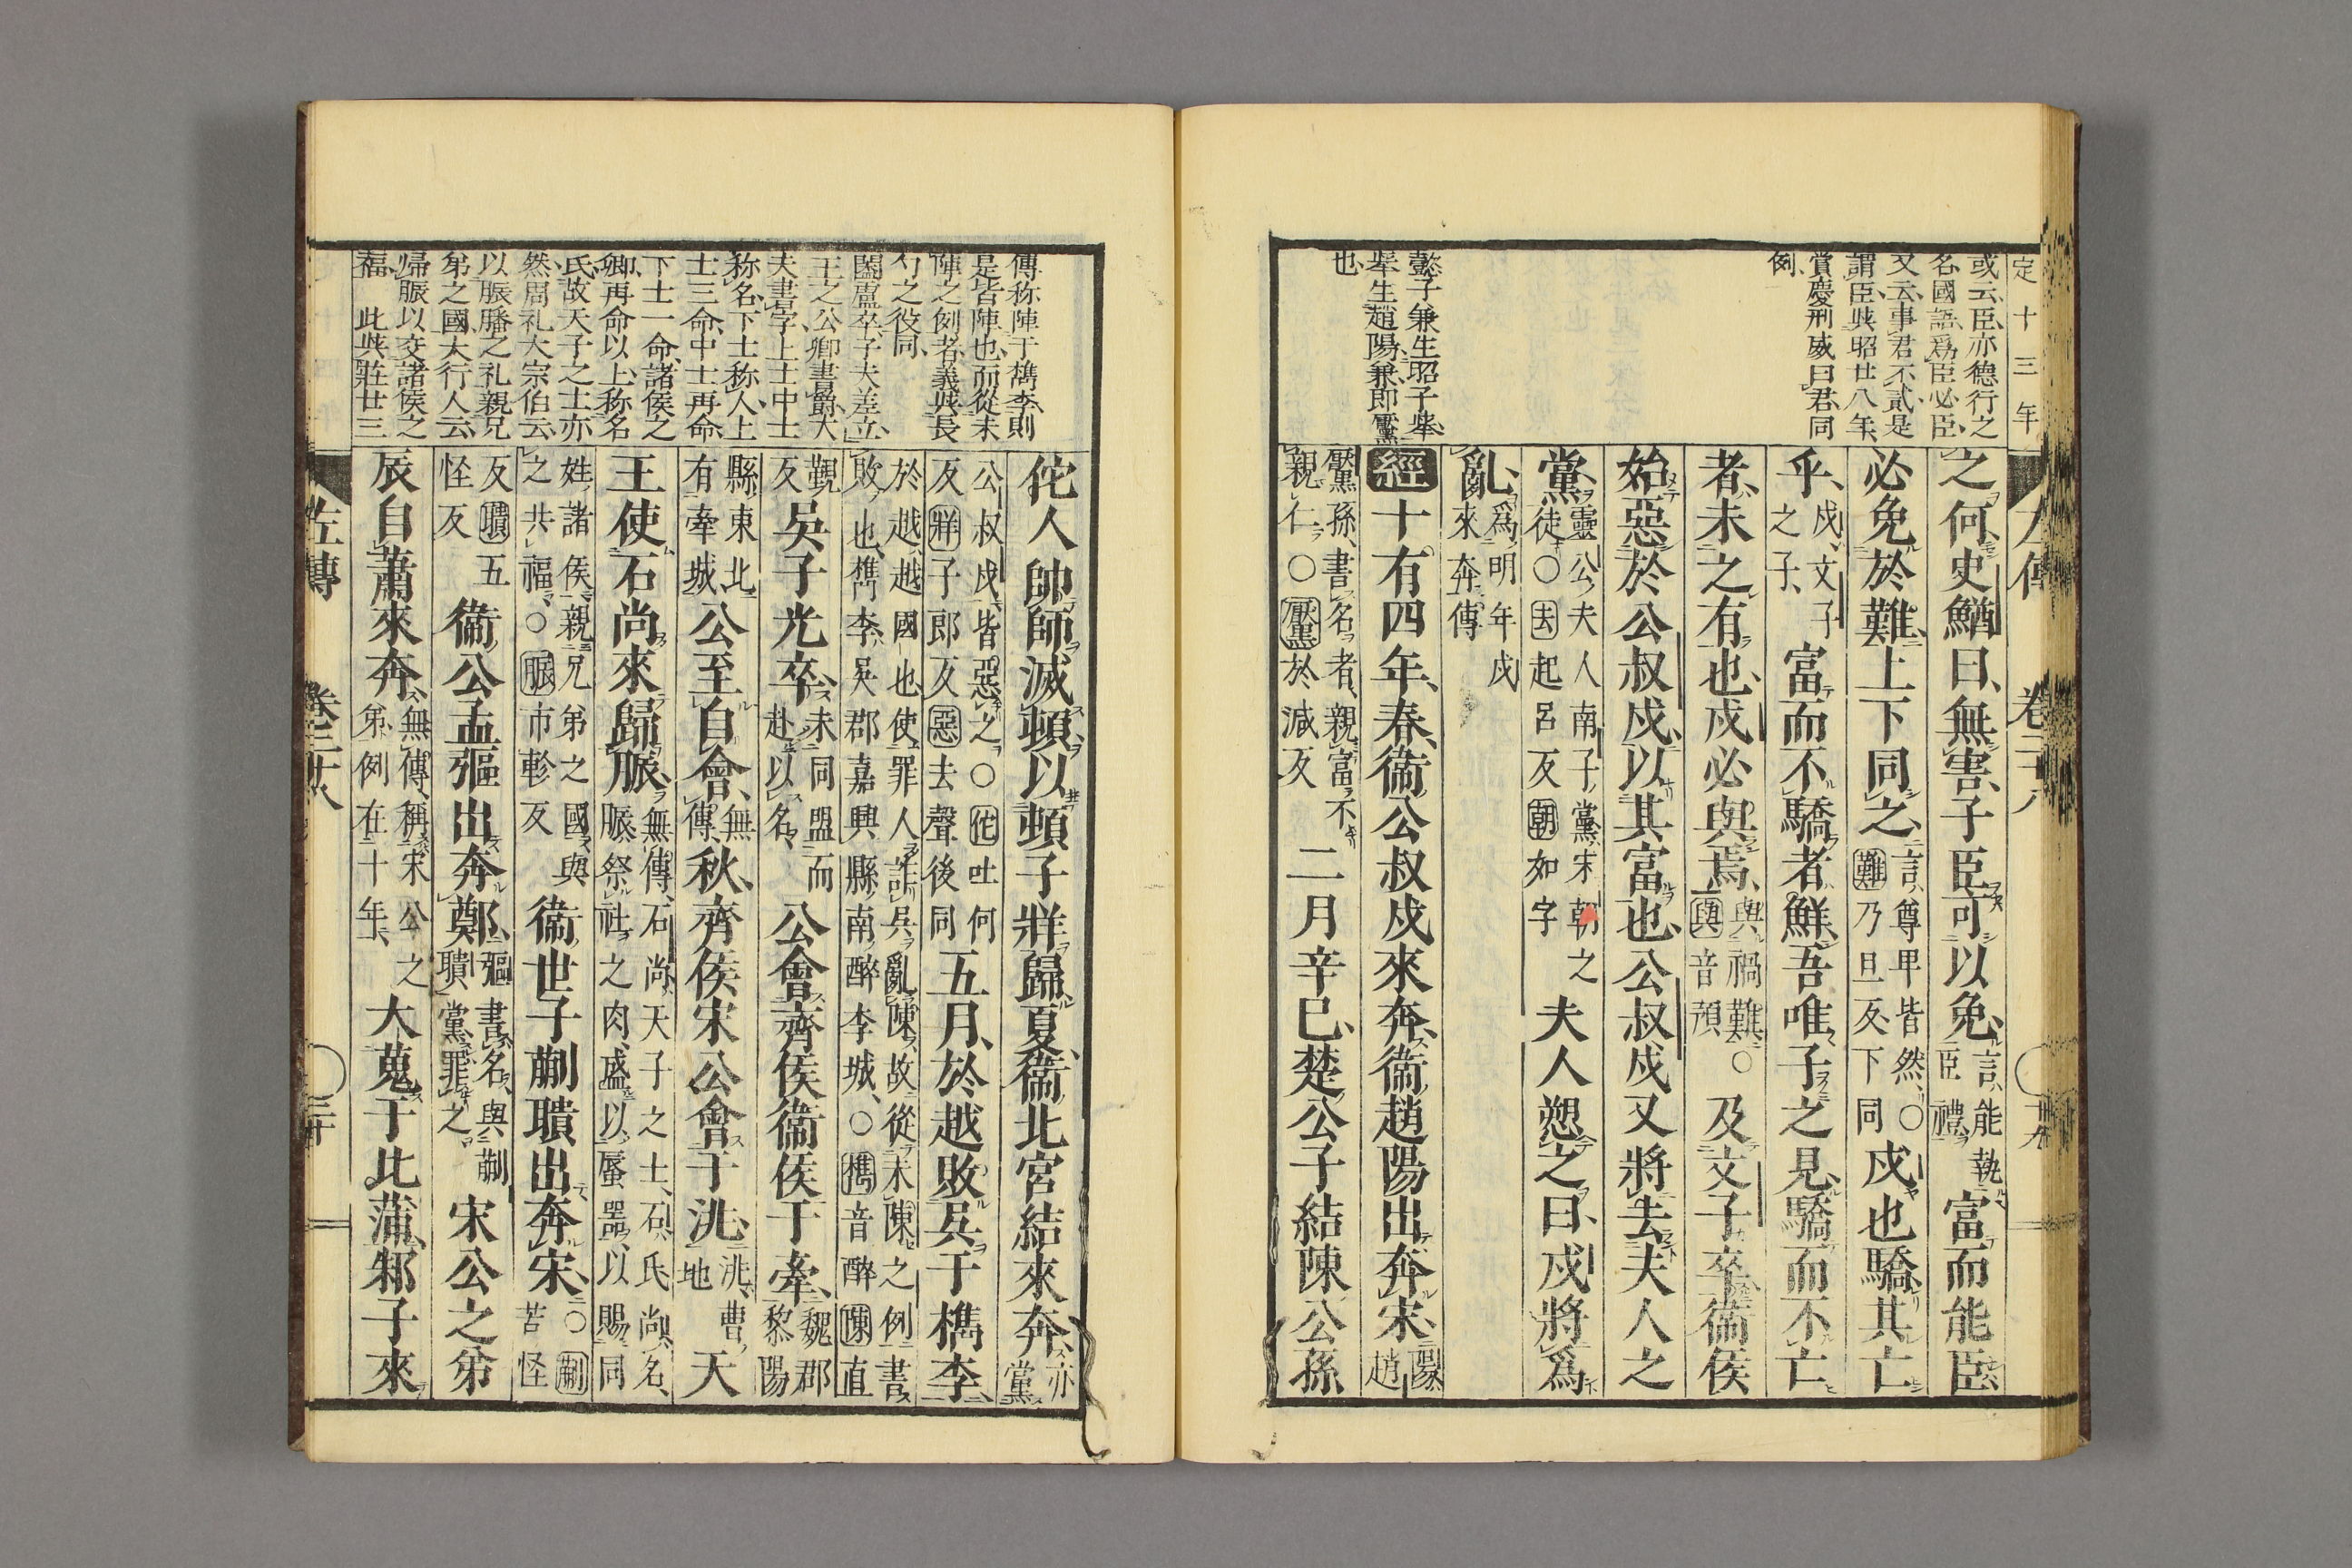 定十三年
或云、臣、亦德行之
名、國語、爲臣必臣、
又云、事君不貳是
謂臣、與昭廿八年、
賞慶刑威曰君、同
例、
懿子兼生昭子擧、
擧生趙陽、兼即黶
也、
左傳 卷二十八
之何、史鰌曰、無害、子臣、可以免、言能執臣禮、富而能臣、
必免於難、上下同之、言尊卑皆然、○難乃旦反、下同戍也驕、其亡
乎、戍、文子之子、富而不驕者鮮、吾唯子之見、驕而不亡
者、未之有也、戍必與焉、與禍難、○與音預及文子卒、衞侯
始惡於公叔戍、以其富也、公叔戍又將去夫人之
黨、靈公夫人南子黨、宋朝之徒○去起呂反朝如字夫人愬之曰、戍將爲
亂、爲明年戍來奔傳
經十有四年、春、衞公叔戍來奔、衞趙陽出奔宋、陽、趙
黶孫、書名者、親富不親仁○黶於減反二月辛巳、楚公子結陳公孫
傳称陣于檇李、則
是皆陣也、而從未
陣之例者、義與長
勺之役同、
闔廬卒、子夫差立、
王之公卿書爵、大
夫書字、上士中士
称名、下士称人、上
士三命、中士再命、
下士一命、諸侯之
卿、再命以上称名
氏、故天子之士亦
然、周礼大宗伯云、
以脤膰之礼、親兄
弟之國、大行人云、
歸脤以交諸侯之
福、 此與莊廿三
佗人帥師滅頓、以頓子牂歸、夏、衞北宮結來奔、亦黨
公叔戍、皆惡之○佗吐何反牂子郎反惡去聲後同五月、於越敗吳于檇李、
於越、越國也、使罪人詐吳亂陳、故從未陳之例書敗也、檇李、吳郡嘉興縣南醉李城、○檇音醉陳直
覲反吳子光卒、未同盟而赴以名、公會齊侯衞侯于牽、魏郡黎陽
縣東北有牽城公至自會、無傳、秋、齊侯宋公會于洮、洮、曹地天
王使石尚來歸脤、無傳、石尚、天子之士、石、氏、尚、名、脤、祭社之肉、盛以蜃器、以賜同
姓諸侯、親兄弟之國、與之共福、○脤市軫反衞世子蒯聵出奔宋、○蒯苦怪
反聵五怪反衞公孟彄出奔鄭、彄書名、與蒯聵黨、罪之宋公之弟
辰自蕭來奔、無傳、稱宋公之弟、例在十年、大蒐于比蒲、邾子來
左傳 卷二十八 三十